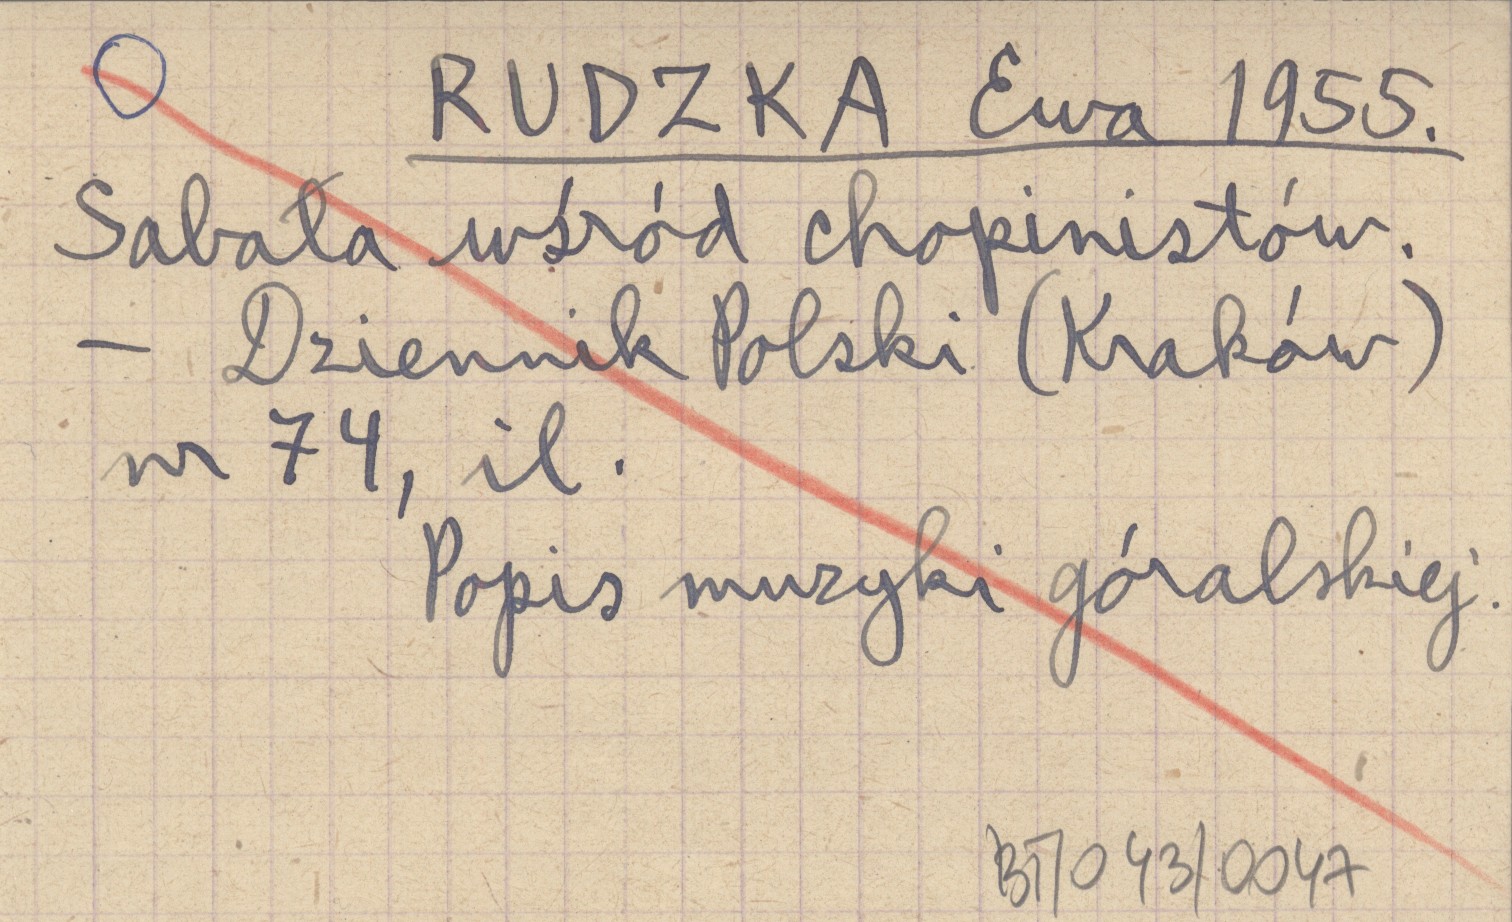 RUDZKA Ewa 1955.
Sabała wśród chopinistów.
— Dziennik Polski (Kraków)
nr 74, il.
Popis muzyki góralskiej.
BT/043/0047